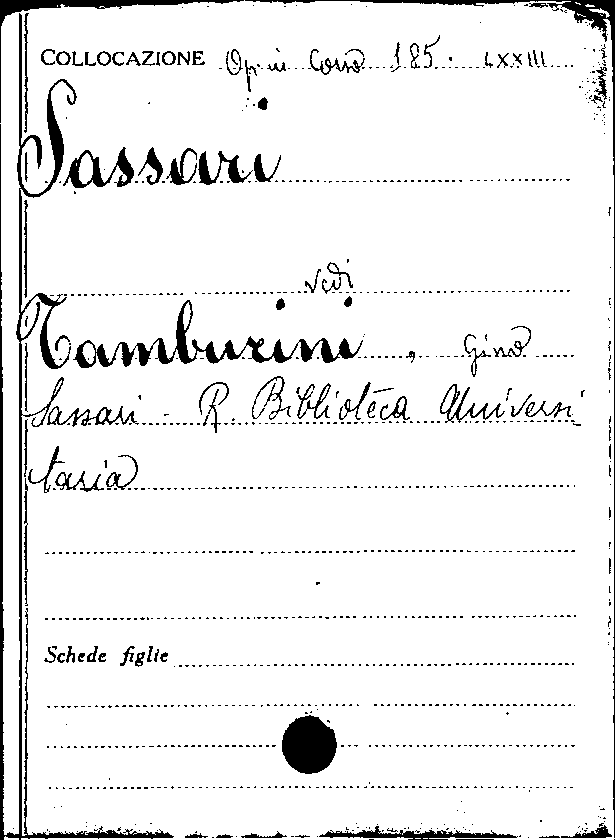 COLLOCAZIONE Op. in Corso 185. LXXIII
Sassari
vedi
Tamburini, Gino
Sassari - R. Biblioteca Universi
taria
Schede figlie